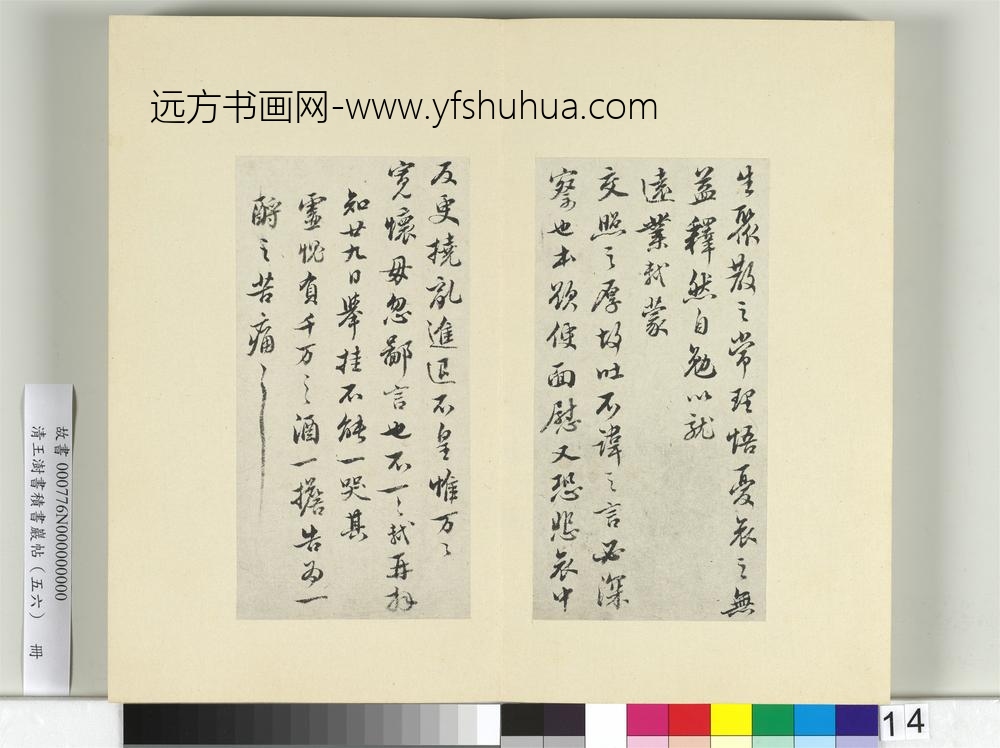 远方书画网-www.yfshuhua.com
生聚散之常理悟憂哀之無
益釋然自勉以就
遠業軾蒙
交照之厚故吐不諱之言必深
察也本欲便面慰又恐悲哀中
反更撓亂進退不皇惟万〻
寬懷毋忽鄙言也不一〻軾再拜
知廿九日舉掛不能一哭其
靈愧負千万〻酒一擔告為一
酹之苦痛〻
故書 000776N000000000
清王澍書積書巖帖（五六） 冊
14